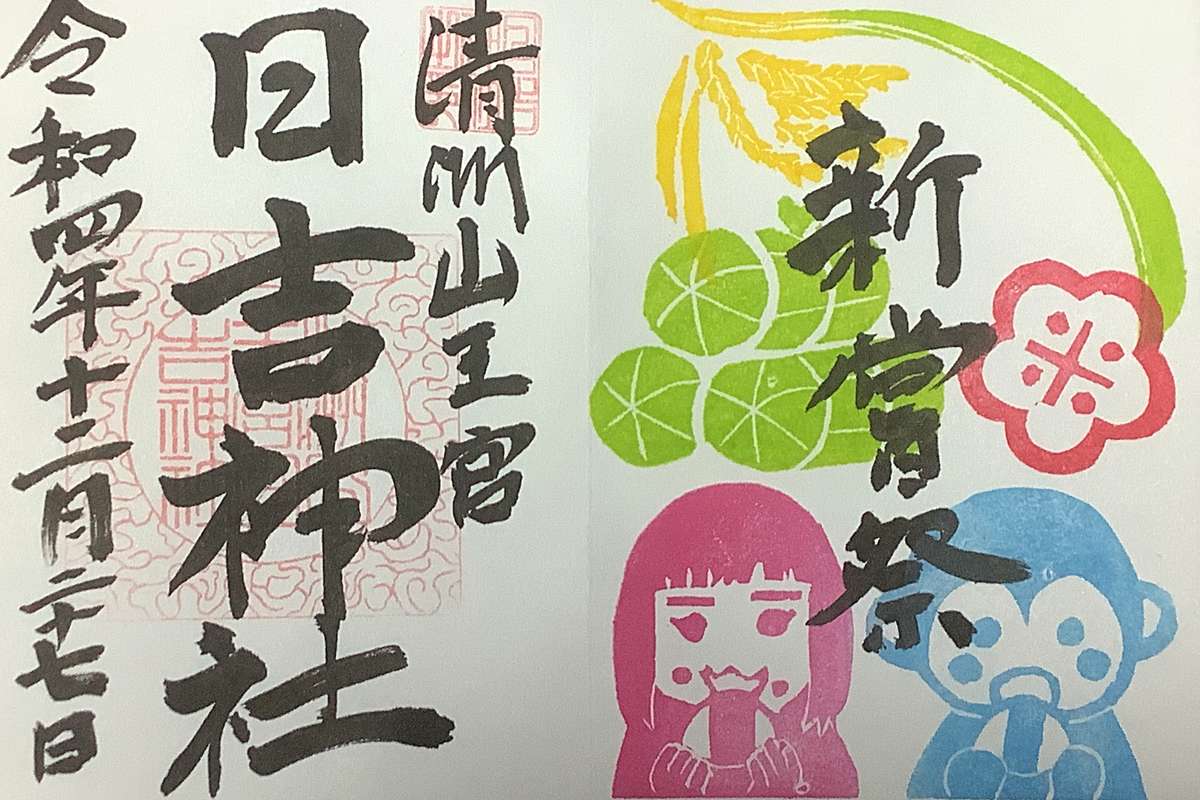 新嘗祭
米
清洲山王宮
日吉神社
令和四年十二月二十七日